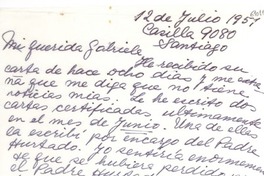 12 de Julio 1951
Casilla 9080
Santiago
Mi querida Gabriela
He recibido su
carta de hace ocho días y me extra
ña que me diga que no tiene
noticias mías. Le he escrito dos
cartas certificadas, ultimamente
en el mes de Junio. Una de ellas
la escribí por encargo del Padre
Hurtado. Yo sentiría enormemen
te que se hubiera perdido
el Padre Hurtado